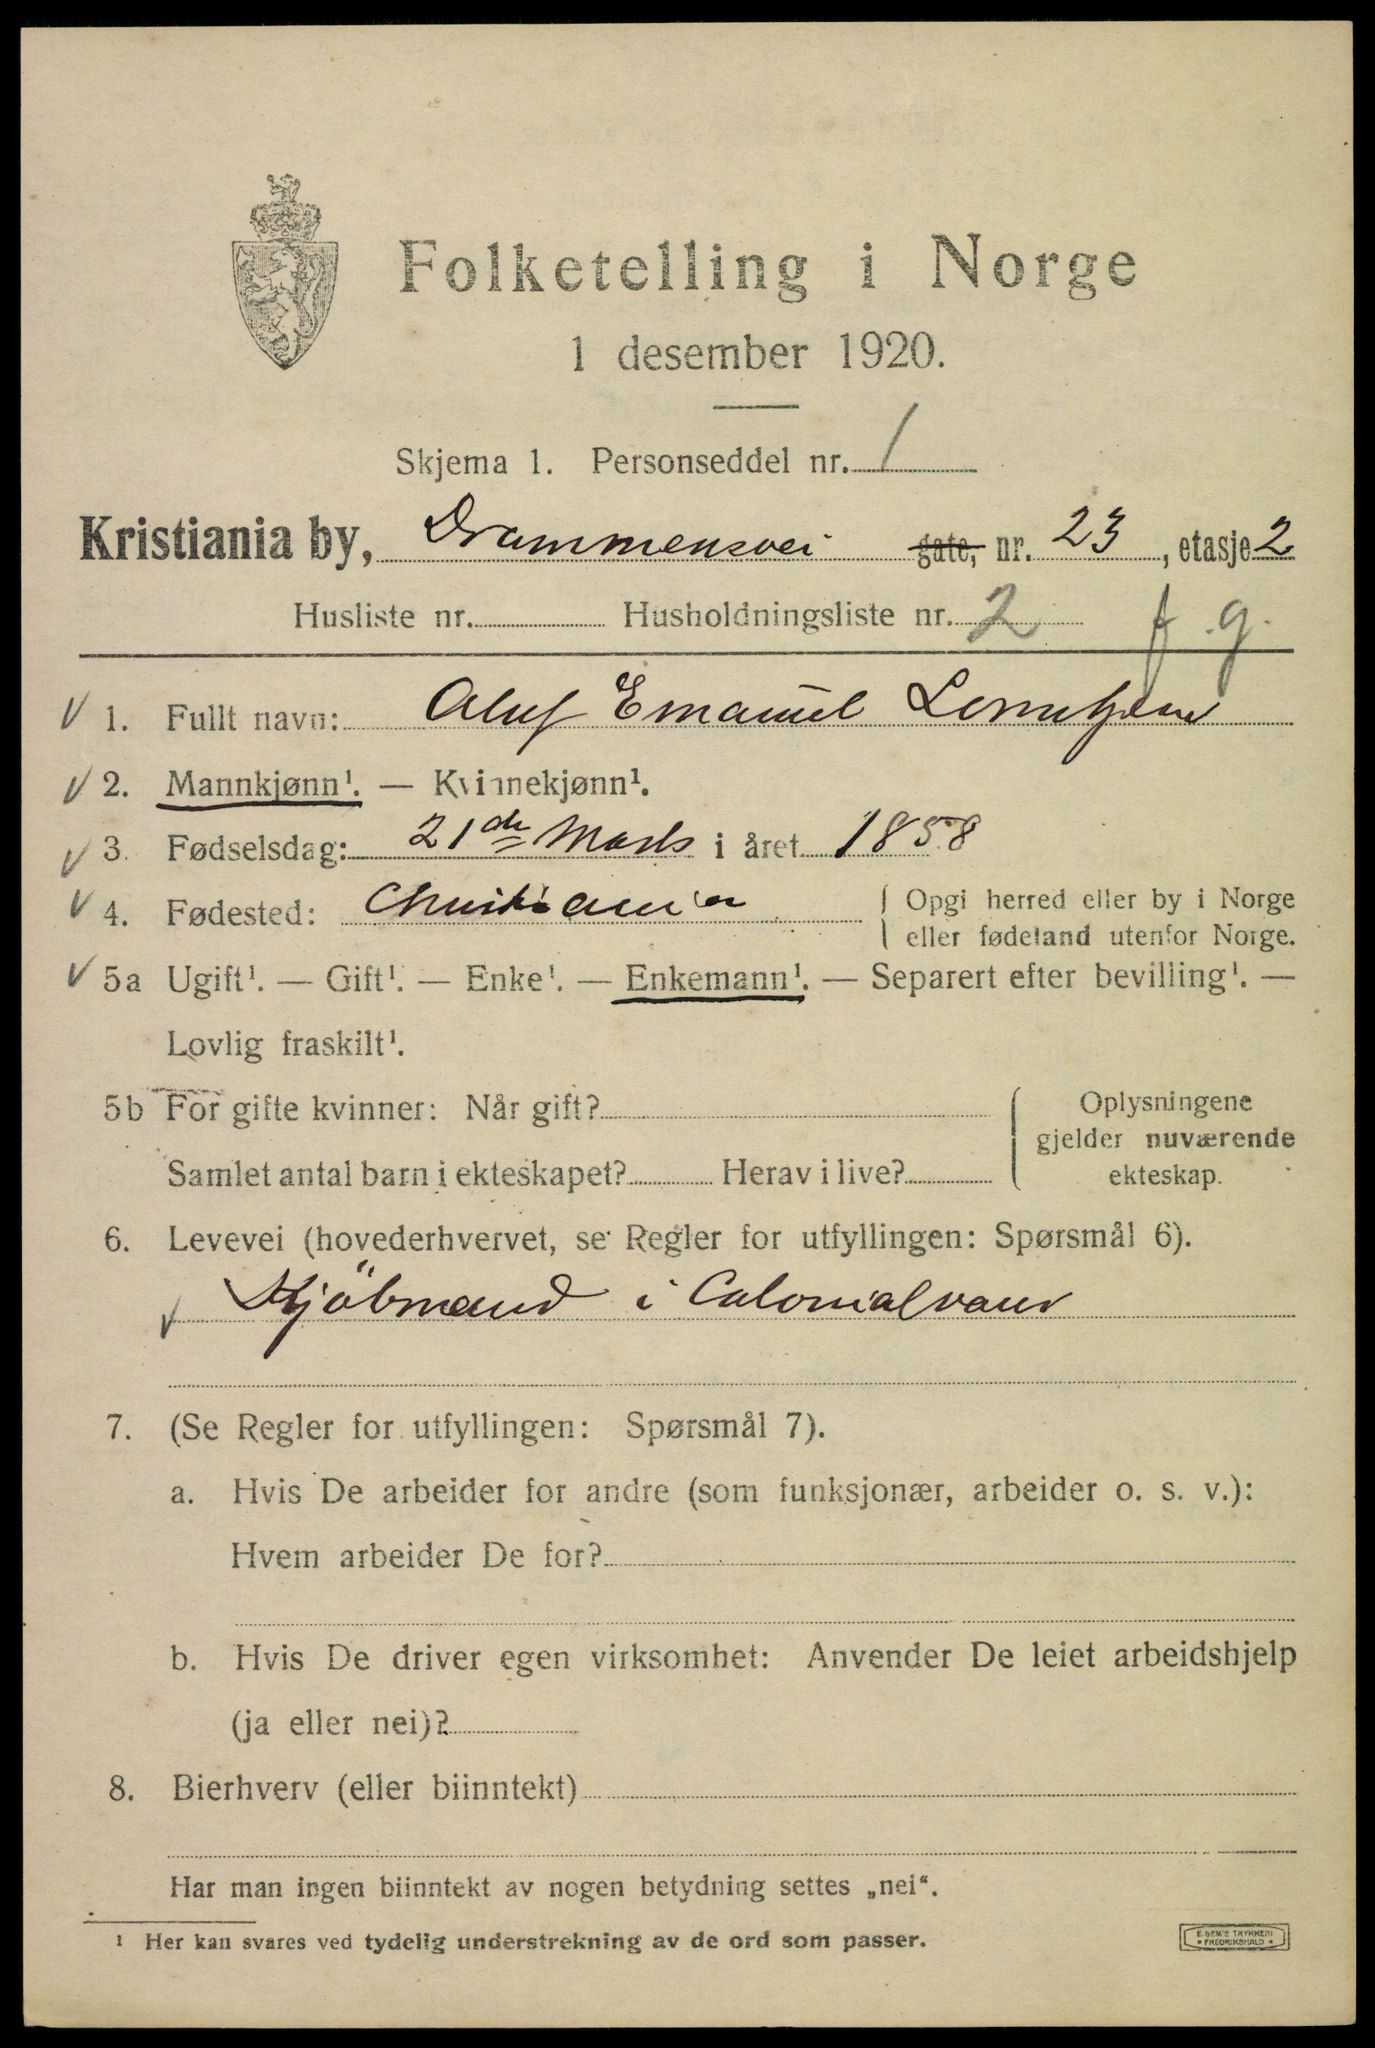 Folketelling i Norge
1 desember 1920.
Skjema 1. Personseddel nr. 1
Kristiania by, Drammensvei gate, nr. 23, etasje 2
Husliste nr. Husholdningsliste nr. 2 f.g.
1. Fullt navn: Oluf Emanuel
2. Mannkjønn¹. — Kvinnekjønn¹.
3. Fødselsdag: 21de Marts i året 1858
4. Fødested: Christiania { Opgi herred eller by i Norge
eller fødeland utenfor Norge.
5a Ugift¹. — Gift¹. — Enke¹. — Enkemann¹. — Separert efter bevilling¹. —
Lovlig fraskilt¹.
5b For gifte kvinner: Når gift? { Oplysningene
gjelder nuværende
Samlet antal barn i ekteskapet? Herav i live? ekteskap.
6. Levevei (hovederhvervet, se Regler for utfyllingen: Spørsmål 6).
Kjöbmand i Colonialvarer
7. (Se Regler for utfyllingen: Spørsmål 7).
a. Hvis De arbeider for andre (som funksjonær, arbeider o. s. v.):
Hvem arbeider De for?
b. Hvis De driver egen virksomhet: Anvender De leiet arbeidshjelp
(ja eller nei)?
8. Bierhverv (eller biinntekt)
Har man ingen biinntekt av nogen betydning settes „nei“.
¹ Her kan svares ved tydelig understrekning av de ord som passer.
E. SEM'S TRYKKERI
* FREDRIKSHALD *